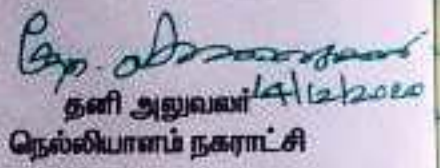 14/12/2020
தனி அலுவலர்
நெல்லியாளம் நகராட்சி